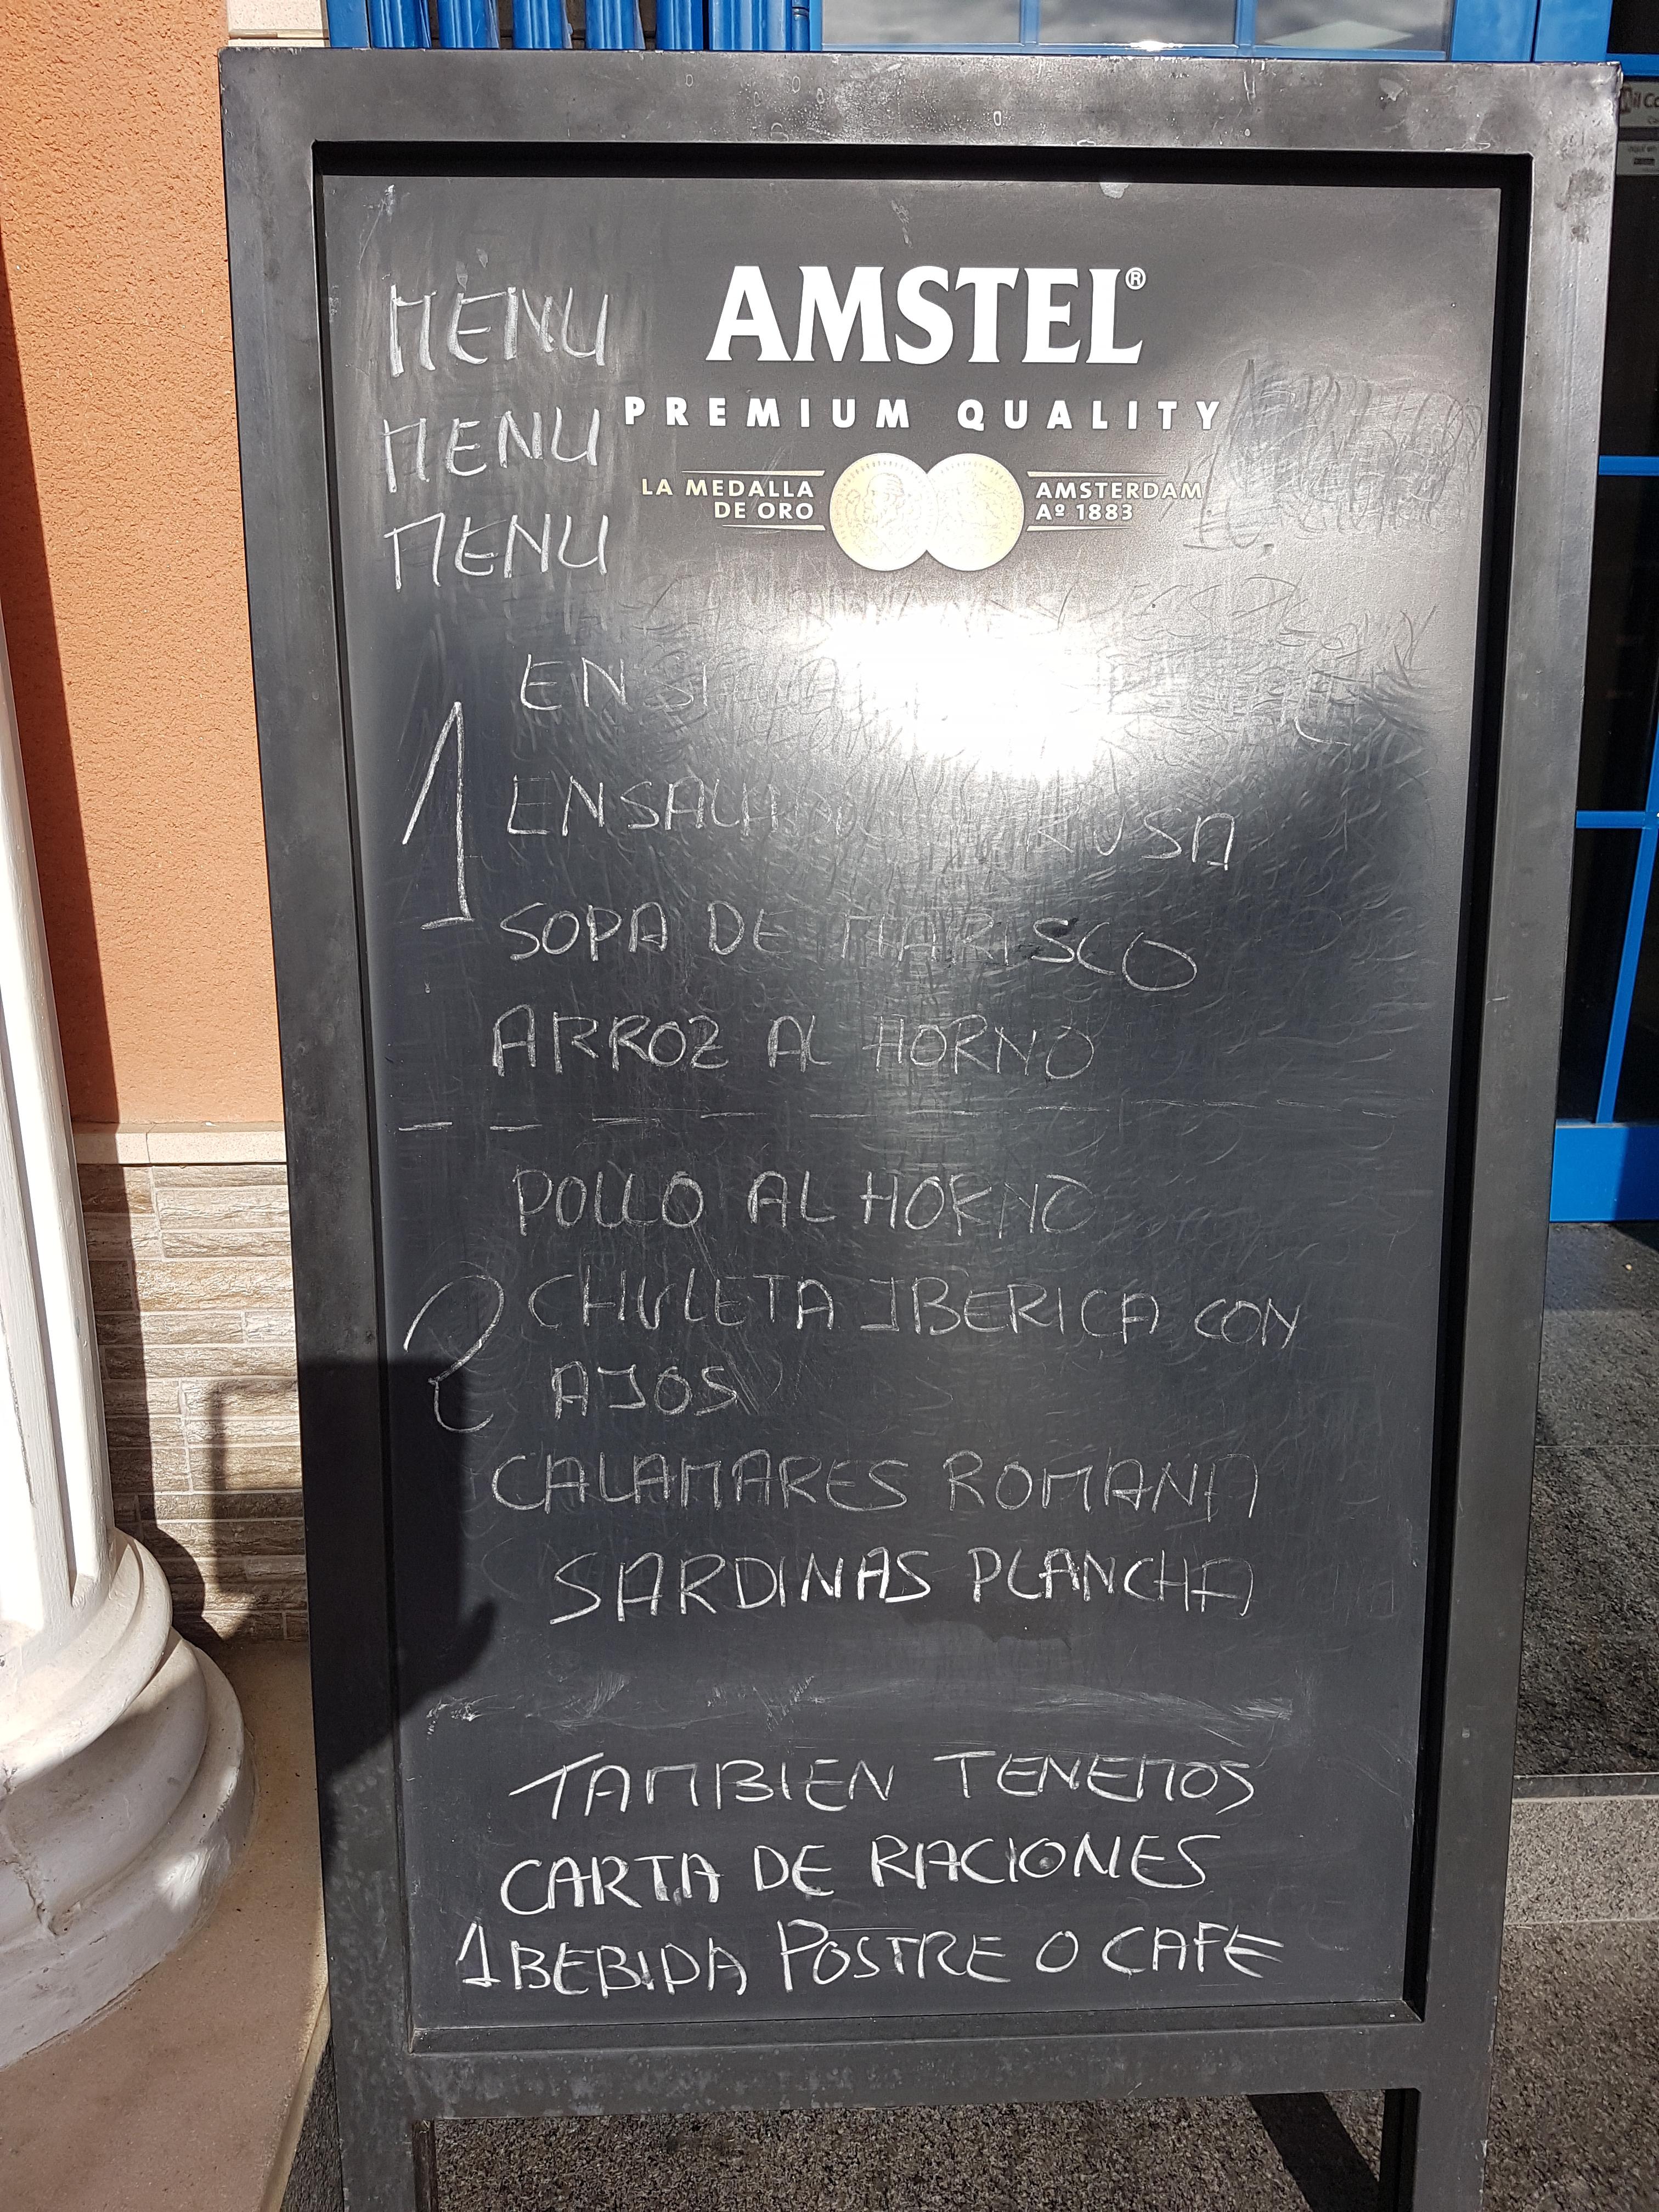 AMSTEL®
PREMIUM QUALITY
LA MEDALLA DE ORO
AMSTERDAM Aº 1883
MENU
MENU
MENU
1
ENSALADA RUSA
SOPA DE MARISCO
ARROZ AL HORNO
POLLO AL HORNO
2
CHULETA IBERICA CON
AJOS
CALAMARES ROMANA
SARDINAS PLANCHA
TAMBIEN TENEMOS
CARTA DE RACIONES
1 BEBIDA POSTRE O CAFE